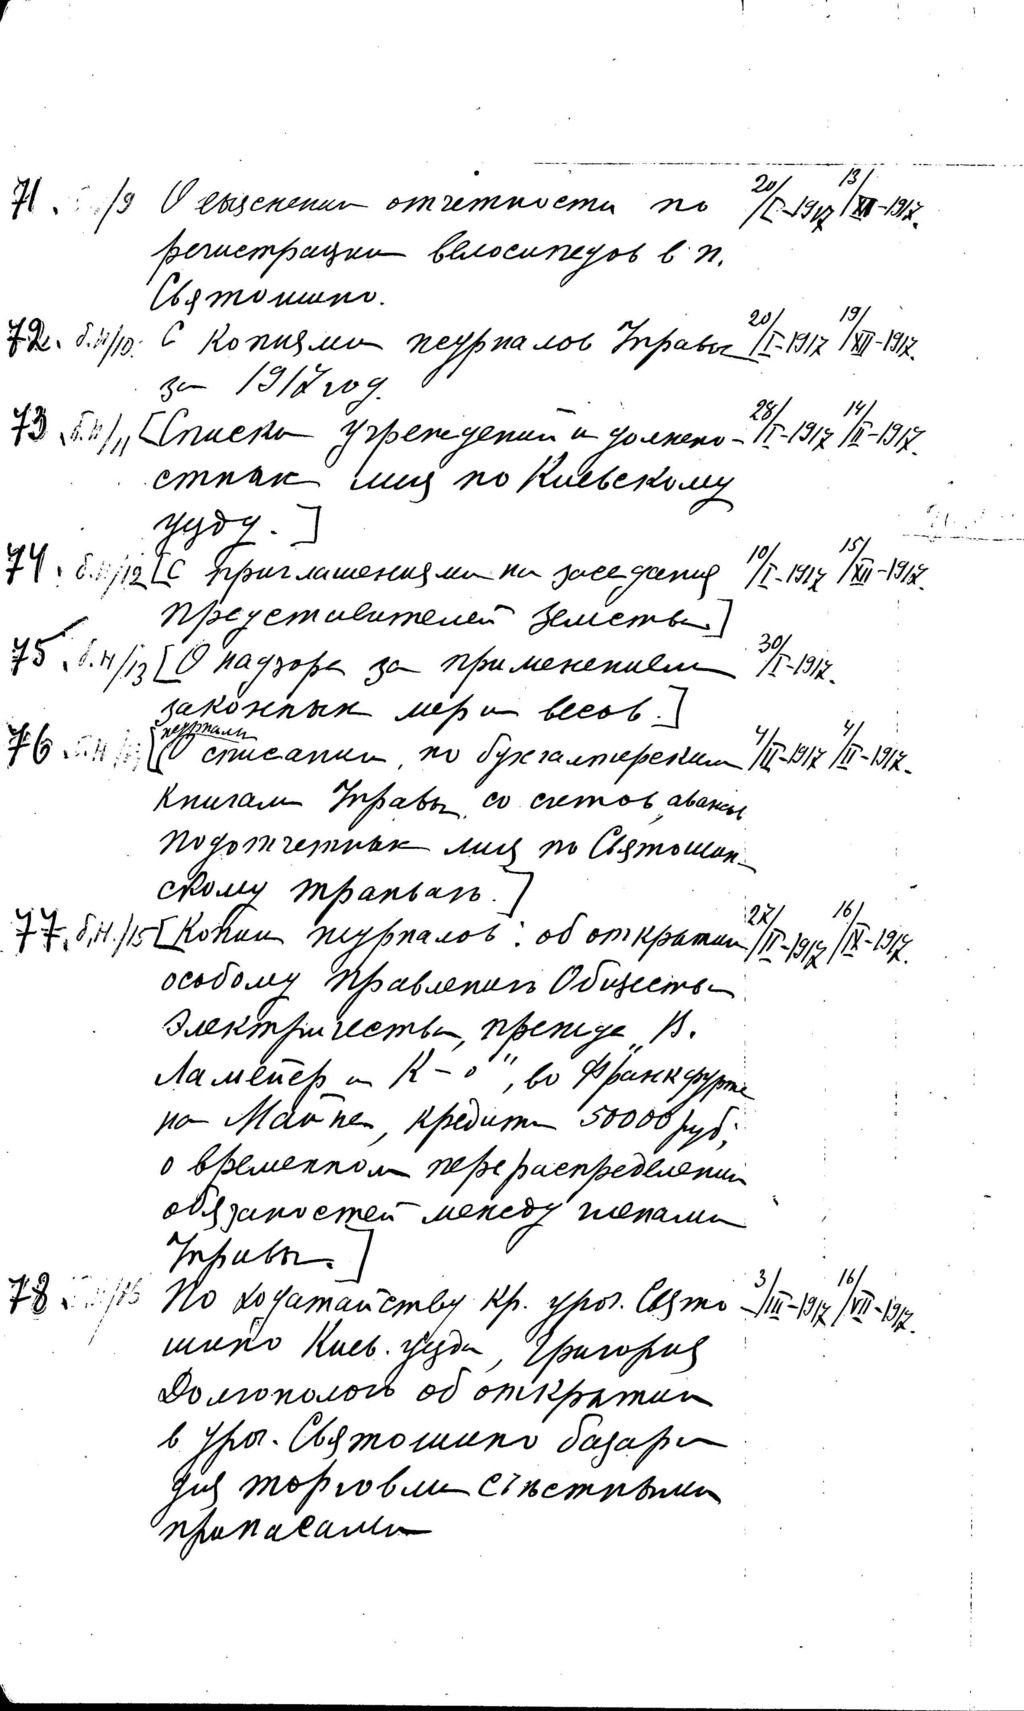 71. /9 О выяснении отчетности по 20/I-1917 13/XII-1917.
регистрации велосипедов в п.
Святошино.
72. б.н/10. С копиями журналов Управы 20/I-1917 19/XII-1917.
за 1917 год.
73. б.н/11 [Списки учреждений и должно- 28/I-1917 14/II-1917.
стных лиц по Киевскому
уезду.]
74. б.н/12 [С приглашениями на заседания 10/I-1917 15/XII-1917.
представителей Земства.]
75. б.н/13 [О надзоре за применением 30/I-1917.
законных мер и весов.]
журналы
76. [О списании, по бухгалтерским 4/II-1917 4/II-1917.
книгам Управы, со счетов, авансы
подотчетных лиц по Святошин-
скому трамваю.]
77. б.н./15 [Копии журналов: об открытии 27/II-1917 16/IX-1917.
особому Правлению Общества
Электричества, прежде „В.
Ламейер и К-о", во Франкфурте
на Майне, кредита 50000 руб;
о временном перераспределении
обязаностей между членами
Управы.]
78. По ходатайству кр. уроч. Свято- 3/III-1917 16/VII-1917.
шино Киев. уезда, Григория
Долгополого об открытии
в уроч. Святошино базара
для торговли съестными
припасами